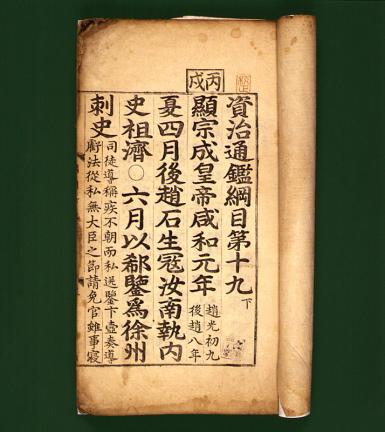 丙戌
資治通鑑綱目第十九下
顯宗成皇帝咸和元年 趙光初九
後趙八年
夏四月後趙石生寇汝南執內
史祖濟〇六月以郗鑒爲徐州
刺史 司徒導稱疾不朝而私送鑒卞壼奏導
虧法從私無大臣之節請免官雖事寢